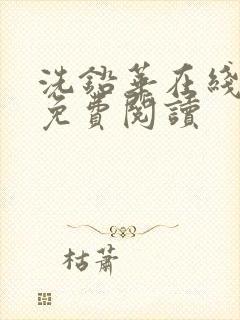 洗鉛華在綫
免費閱讀
枯蕭